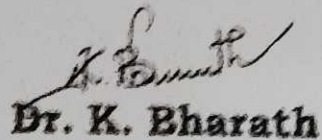 K. Bharath
Dr. K. Bharath